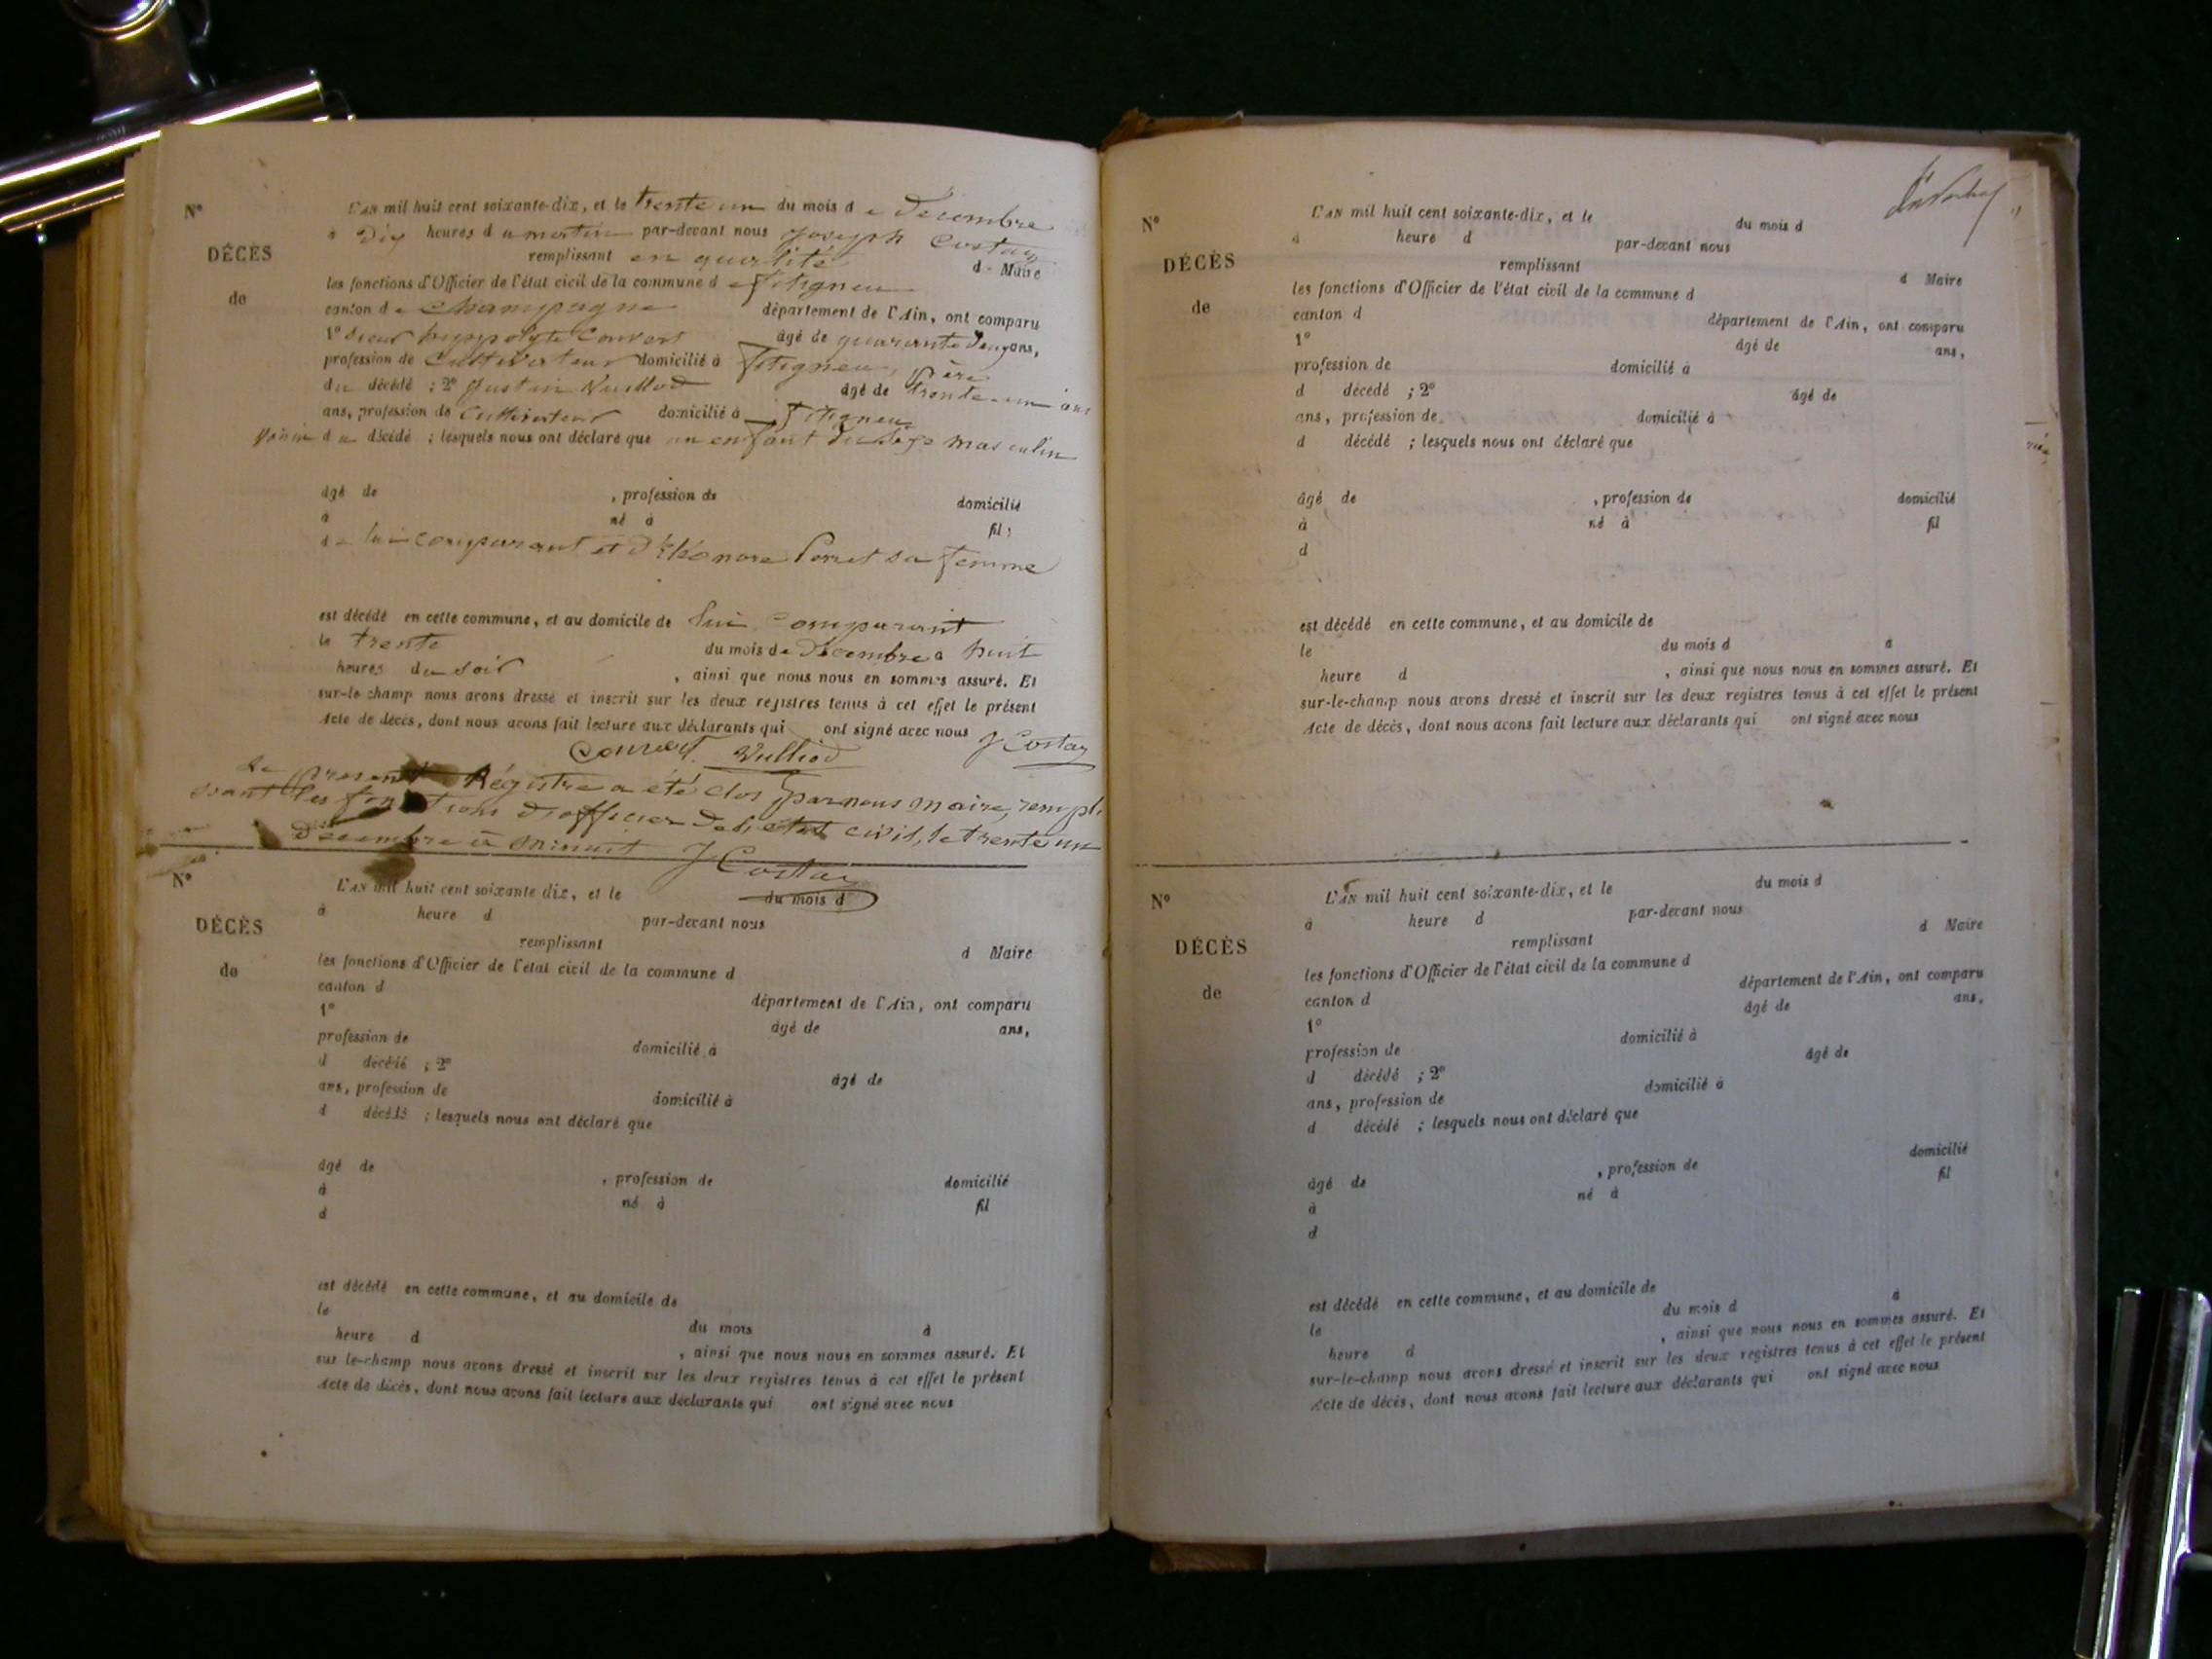 N°
DÉCÈS
de
L'AN mil huit cent soixante-dix, et le trente un du mois d e Décembre
à Dix heures d u matin par-devant nous Joseph Costaz
remplissant en qualité d e Maire
les fonctions d'Officier de l'état civil de la commune d e fitigneu
canton d e Champagne département de l'Ain, ont comparu
1° sieur hyppolyte Convert âgé de quarante deux ans,
profession de Cultivateur domicilié à fitigneu, père
du décédé ; 2° Justin Vuilliod âgé de trente-un ans
ans, profession de Cultivateur domicilié à fitigneu
voisin d u décédé ; lesquels nous ont déclaré que un enfant du sexe masculin
âgé de , profession de domicilié
à né à fils
de lui comparant et d'éléonore Perret sa femme
est décédé en cette commune, et au domicile de lui comparant
le trente du mois de Décembre à huit
heures du soir , ainsi que nous nous en sommes assuré. Et
sur-le-champ nous avons dressé et inscrit sur les deux registres tenus à cet effet le présent
Acte de décès, dont nous avons fait lecture aux déclarants qui ont signé avec nous J Costaz
Convert Vulliod
Le présent Régistre a été clos par nous maire, rempli
ssant les fonctions d'officier de l'état civil, le trente un
Décembre à minuit J Costaz
N°
DÉCÈS
de
L'AN mil huit cent soixante dix, et le du mois d
à heure d par-devant nous
remplissant d Maire
les fonctions d'Officier de l'état civil de la commune d
canton d département de l'Ain, ont comparu
1° âgé de ans,
profession de domicilié à
d décédé ; 2° âgé de
ans, profession de domicilié à
d décédé ; lesquels nous ont déclaré que
âgé de , profession de domicilié
à né à fil
d
est décédé en cette commune, et au domicile de
le du mois à
heure d , ainsi que nous nous en sommes assuré. Et
sur le-champ nous avons dressé et inscrit sur les deux registres tenus à cet effet le présent
Acte de décès, dont nous avons fait lecture aux déclarants qui ont signé avec nous
N°
DÉCÈS
de
L'AN mil huit cent soixante-dix, et le du mois d
à heure d par-devant nous
remplissant d Maire
les fonctions d'Officier de l'état civil de la commune d
canton d département de l'Ain, ont comparu
1° âgé de ans,
profession de domicilié à
d décédé ; 2° âgé de
ans, profession de domicilié à
d décédé ; lesquels nous ont déclaré que
âgé de , profession de domicilié
à né à fil
d
est décédé en cette commune, et au domicile de
le du mois d à
heure d , ainsi que nous nous en sommes assuré. Et
sur-le-champ nous avons dressé et inscrit sur les deux registres tenus à cet effet le présent
Acte de décès, dont nous avons fait lecture aux déclarants qui ont signé avec nous
N°
DÉCÈS
de
L'AN mil huit cent soixante-dix, et le du mois d
à heure d par-devant nous
remplissant d Maire
les fonctions d'Officier de l'état civil de la commune d
canton d département de l'Ain, ont comparu
1° âgé de ans,
profession de domicilié à
d décédé ; 2° âgé de
ans, profession de domicilié à
d décédé ; lesquels nous ont déclaré que
âgé de , profession de domicilié
à né à fil
d
est décédé en cette commune, et au domicile de
le du mois d à
heure d , ainsi que nous nous en sommes assuré. Et
sur-le-champ nous avons dressé et inscrit sur les deux registres tenus à cet effet le présent
Acte de décès, dont nous avons fait lecture aux déclarants qui ont signé avec nous